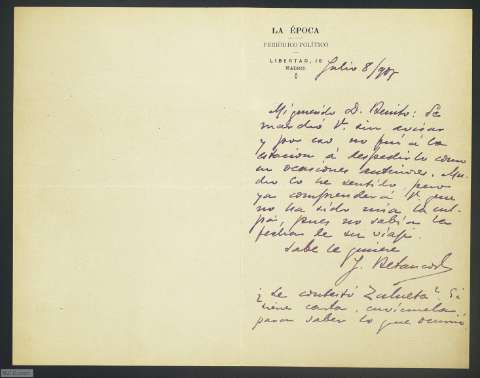 LA ÉPOCA
PERIÓDICO POLÍTICO
LIBERTAD, 16
MADRID
Julio 8/907
Mi querido D. Benito: Se
marchó V. sin avisar
y por eso no fuí a la
estacion á despedirle como
en ocasiones anteriores. Mu-
cho lo he sentido, pero
ya comprenderá V. que
no ha sido mia la cul-
pa, pues no sabia la
fecha de su viaje.
Sabe le quiere
J. Betancort
¿Le contestó Zulueta? Si
tiene carta, envíemela
para saber lo que ocurrió